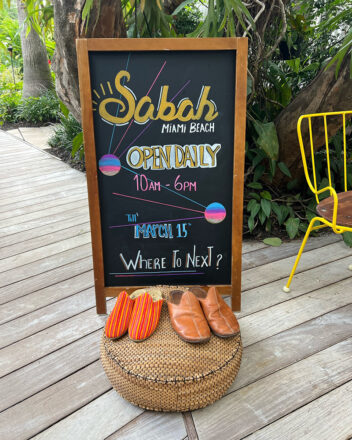 Sabah
MIAMI BEACH
OPEN DAILY
10AM - 6PM
'TILL
MARCH 15TH
WHERE TO NEXT?